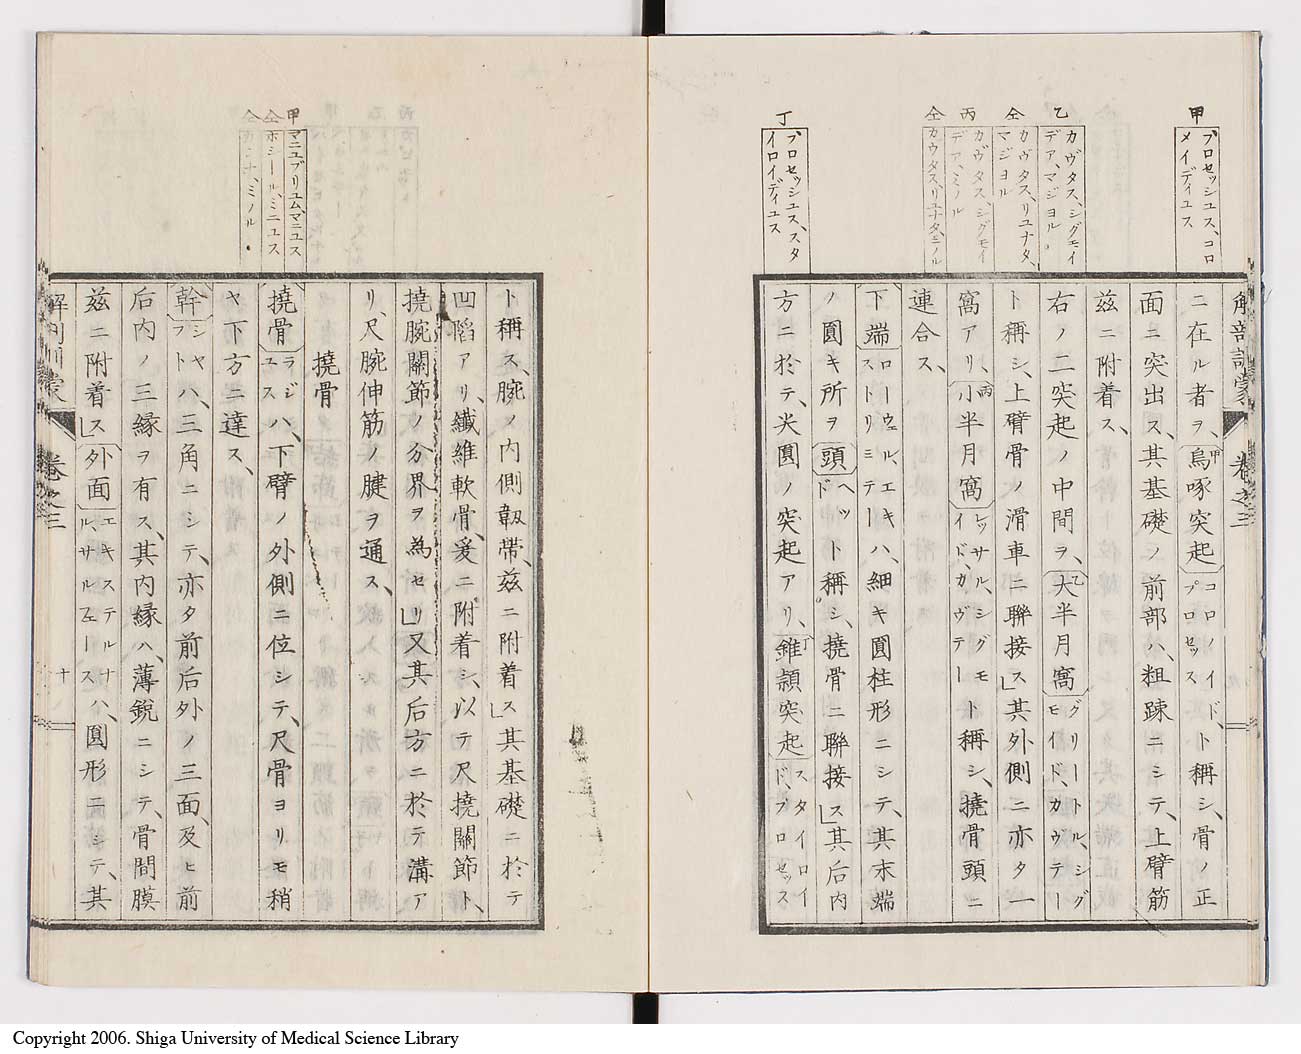 甲
プロセッシユス、コロ
メイディユス
乙
カヴタス、シグモイ
デア、マジヨル
仝
カヴタス、リユナタ、
マジヨル
丙
カヴタス、シグモイ
デア、ミノル
仝
カウタス、リユナタ、ミノル
丁
プロセッシユス、スタ
イロイディユス
解剖訓蒙 巻之三
ニ在ル者ヲ、烏啄突起コロノイド、プロセッスト稱シ、骨ノ正
面ニ突出ス、其基礎ノ前部ハ、粗踈ニシテ、上臂筋
茲ニ附着ス、
右ノ二突起ノ中間ヲ、大半月窩グリートル、シグモイド、カヴテー
ト稱シ、上臂骨ノ滑車ニ聯接ス」其外側ニ亦タ一
窩アリ、小半月窩レッサル、シグモイド、カヴテート稱シ、撓骨頭ニ
連合ス、
下端ローウェル、エキストリミテーハ、細キ圓柱形ニシテ、其末端
ノ圓キ所ヲ頭ヘッドト稱シ、撓骨ニ聯接ス」其后内
方ニ於テ、尖圓ノ突起アリ、錐頴突起スタイロイド、プロセッス
甲
マニユブリユム、マニユス
仝
ホシール、ミニユス
仝
カンナ、ミノル
ト稱ス、腕ノ内側韌帶、茲ニ附着ス」其基礎ニ於テ
凹䧟アリ、纎維軟骨、爰ニ附着シ、以テ尺撓關節ト、
撓腕關節ノ分界ヲ為セリ」又其后方ニ於テ溝ア
リ、尺腕伸筋ノ腱ヲ通ス、
撓骨
撓骨ラジユスハ、下臂ノ外側ニ位シテ、尺骨ヨリモ稍
ヤ下方ニ達ス、
幹シヤフトハ、三角ニシテ、亦タ前后外ノ三面、及ヒ前
后内ノ三縁ヲ有ス、其内縁ハ、薄銳ニシテ、骨間膜
茲ニ附着ス」外面エキステルナル、サルフェースハ、圓形ニシテ、其
巻之三 十
Copyright 2006. Shiga University of Medical Science Library